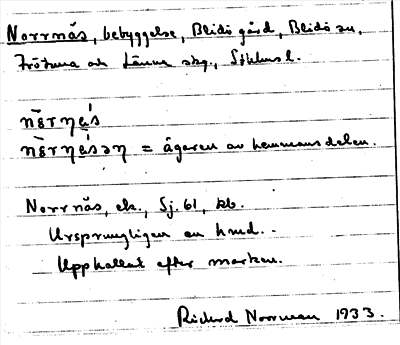 Norrnäs, bebyggelse, Blidö gård, Blidö sn,
Frötuna och Länna skg., Sthlms l.
nɛ̀rŋá̤s
nɛ̀rŋá̤sən = ägaren av hemmansdelen.
Norrnäs, ek., Sj. 61, kb.
Ursprungligen en hmd.
Upphallat efter marken.
Richard Norrman 1933.